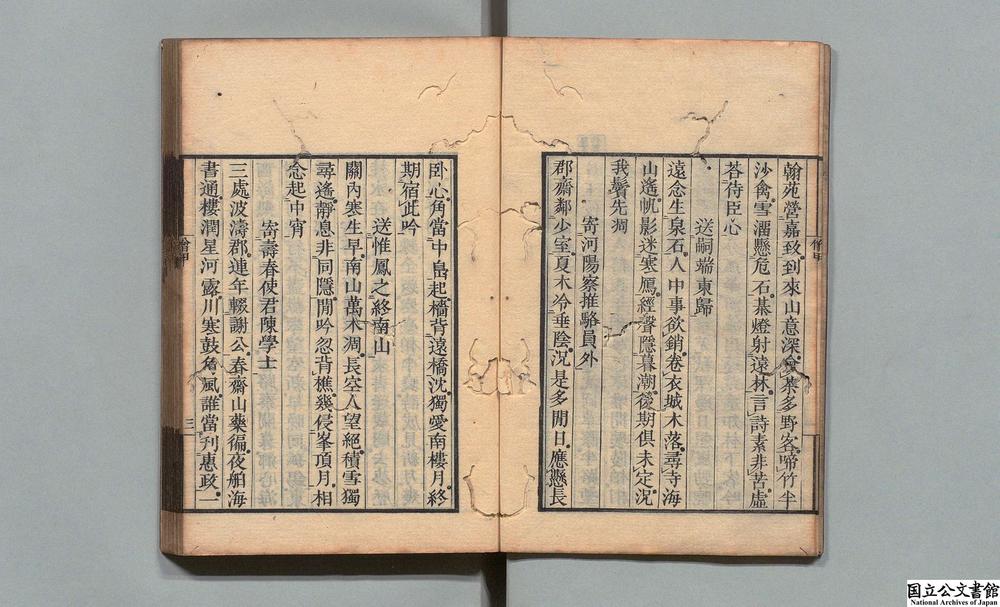 翰苑營嘉致到來山意深會棊多野客啼竹半
沙禽雪溜懸危石棊燈射遠林言詩素非苦虛
荅侍臣心
送嗣端東歸
遠念生泉石人中事欲銷卷衣城木落尋寺海
山遙帆影迷寒鴈經聲隱暮潮後期俱未定況
我鬢先凋
寄河陽察推駱員外
郡齋鄰少室夏木冷垂陰況是多閒日應懸長
臥心角當中嵒起檣背遠橋沈獨愛南樓月終
期宿此吟
送惟鳳之終南山
關內寒生早南山萬木凋長空人望絕積雪獨
尋遙靜息非同隱閒吟忽背樵幾侵峯頂月相
念起中宵
寄壽春使君陳學士
三處波濤郡連年輟謝公春齋山藥徧夜舶海
書通樓潤星河露川寒鼓角風誰當刊惠政一
三
僧甲
国立公文書館
National Archives of Japan